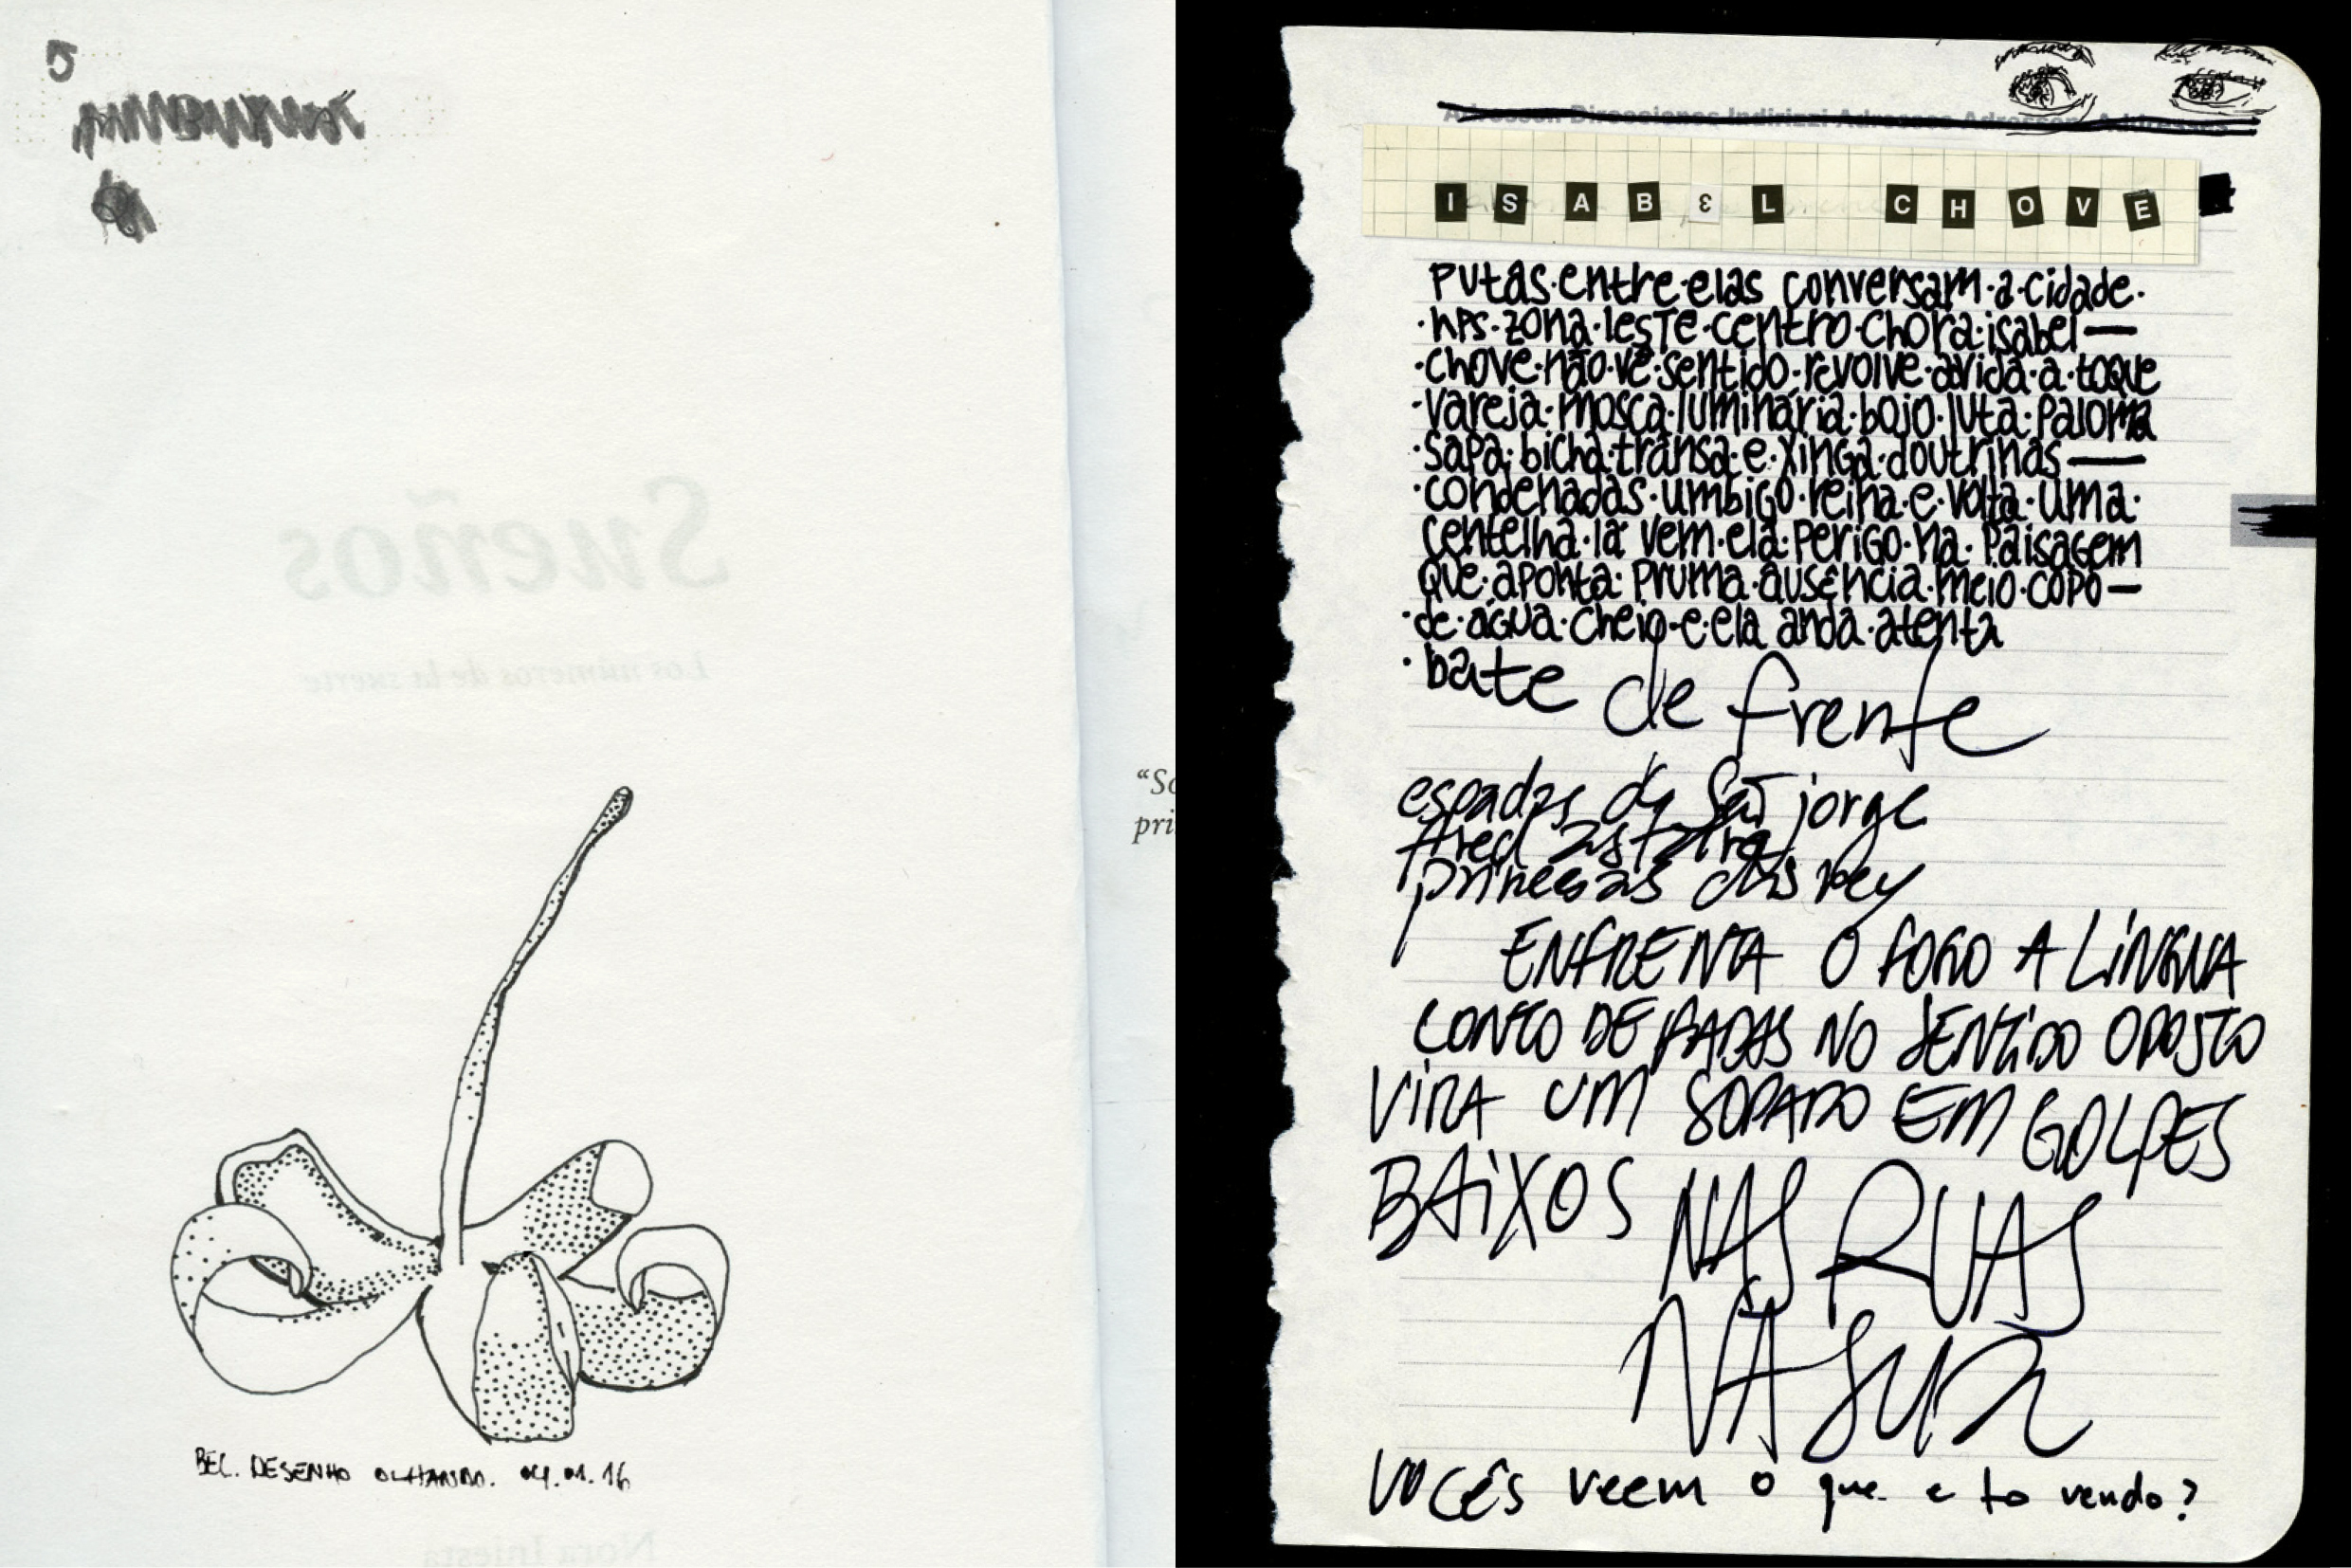 5
Sueños
Los números de la suerte
"So
pri
BEL. DESENHO OLHANDO. 04.01.16
Nora Iniesta
Adressen Direcciones Indirizzi Adresses Adressen Addresses
ISABEL CHOVE
PUtas·entre·elas conversam·a·cidade·
·hps·zona·lesTe·centro·chora·isabel—
·chove·não·vê·sentido·revolve·avida·a·toque
·vareja·mosca·luminária·bojo·luta·paloma
·sapa·bicha·transa·e·xinga·doutrinas—
·condenadas·umbigo·reina·e·volta·uma·
centelha·lá vem·ela·perigo·na·paisagem
que·aponta·pruma·ausência·meio·copo—
·de·água·cheio·e·ela anda·atenta
·bate de frente
espadas de São jorge
fred astaire
princesas disney
ENFRENTA O FOGO A LÍNGUA
CONTO DE FADAS NO SENTIDO OPOSTO
VIRA UM SOPAPO EM GOLPES
BAIXOS NAS RUAS
NA SUA
VOCÊS veem o que e to vendo?